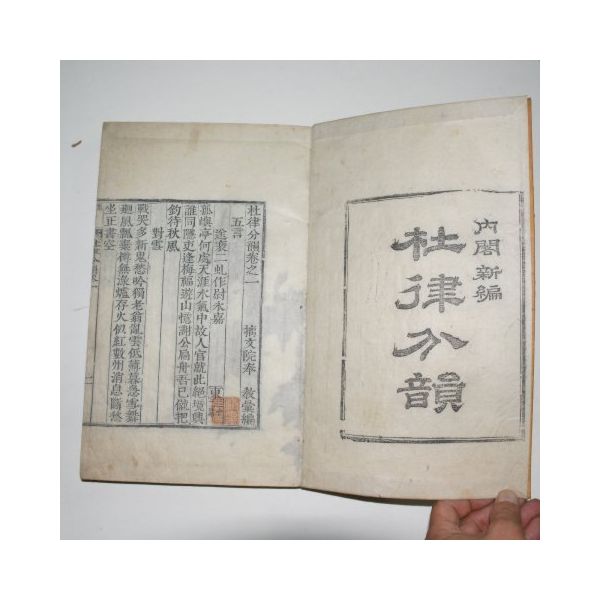 內閣新編
杜律分韻
杜律分韻卷之一 摛文院奉 敎彙編
五言
送裴二虬作尉永嘉 東
孤嶼亭何處天涯水氣中故人官就此絕境興
誰同隱吏逢梅福遊山憶謝公扁舟吾已僦把
釣待秋風
對雪
戰哭多新鬼愁吟獨老翁亂雲低薄暮急雪舞
廻風瓢棄樽無淥爐存火似紅數州消息斷愁
坐正書空